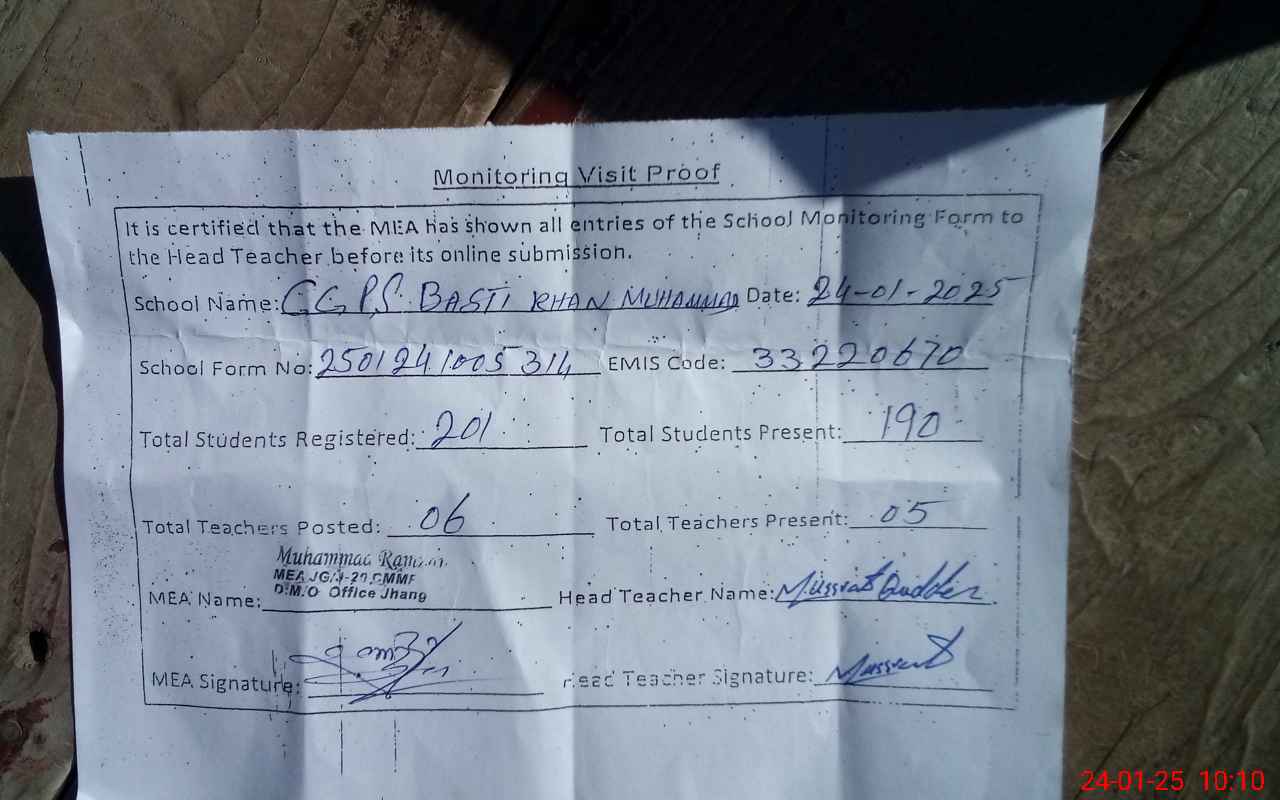 Monitoring Visit Proof
It is certified that the MEA has shown all entries of the School Monitoring Form to
the Head Teacher before its online submission.
School Name: G.G.P.S. BASTI KHAN MUHAMMAD Date: 24-01-2025
School Form No: 2501241005314 EMIS Code: 33220670
Total Students Registered: 201 Total Students Present: 190
Total Teachers Posted: 06 Total Teachers Present: 05
Muhammad
MEA
D.M.O Office Jhang
MEA Name: Head Teacher Name: Mussrat
MEA Signature: Head Teacher Signature: Mussrat
24-01-25 10:10